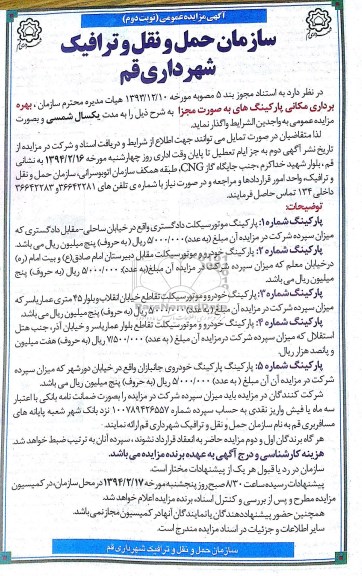 آگهی مزایده عمومی (نوبت دوم)
سازمان حمل و نقل و ترافیک
شهرداری قم
در نظر دارد به استناد مجوز بند ۵ مصوبه مورخه ۱۳۹۳/۱۲/۱۰ هیات مدیره محترم سازمان ، بهره
برداری مکانی پارکینگ های به صورت مجزا به شرح ذیل را به مدت یکسال شمسی و بصورت
مزایده عمومی به واجدین الشرایط واگذار نماید.
لذا متقاضیان در صورت تمایل می توانند جهت اطلاع از شرایط و دریافت اسناد و شرکت در مزایده از
تاریخ نشر آگهی دوم به جز ایام تعطیل تا پایان وقت اداری روز چهارشنبه مورخه ۱۳۹۴/۲/۱۶ به نشانی
قم، بلوار شهید خداکرم ،جنب جایگاه گاز CNG، طبقه همکف سازمان اتوبوسرانی، سازمان حمل و نقل
و ترافیک، واحد امور قراردادها و مراجعه و در صورت نیاز با شماره ی تلفن های ۳۶۶۴۲۲۸۱و۳۶۶۴۲۲۸۳
داخلی ۱۳۴ تماس حاصل فرمایند.
توضیحات:
پارکینگ شماره ۱: پارکینگ موتورسیکلت دادگستری واقع در خیابان ساحلی-مقابل دادگستری که
میزان سپرده شرکت در مزایده آن مبلغ (به عدد) ۵/۰۰۰/۰۰۰ ریال (به حروف) پنج میلیون ریال می باشد.
پارکینگ شماره ۲: پارکینگ خودرو و موتورسیکلت مقابل دبیرستان امام صادق(ع) و بیت امام (ره)
درخیابان معلم که میزان سپرده شرکت در مزایده آن مبلغ(به عدد) ۵/۰۰۰/۰۰۰ ریال (به حروف) پنج
میلیون ریال می باشد.
پارکینگ شماره ۳: پارکینگ خودرو و موتورسیکلت تقاطع خیابان انقلاب و بلوار ۴۵ متری عماریاسر که
میزان سپرده شرکت در مزایده آن مبلغ (به عدد) ۵/۰۰۰/۰۰۰ ریال (به حروف) پنج میلیون ریال می باشد.
پارکینگ شماره ۴: پارکینگ خودرو و موتورسیکلت تقاطع بلوار عماریاسر و خیابان آذر، جنب هتل
استقلال که میزان سپرده شرکت در مزایده آن مبلغ ( به عدد) ۷/۵۰۰/۰۰۰ ریال (به حروف) هفت میلیون
و پانصد هزار ریال.
پارکینگ شماره ۵: پارکینگ پارکینگ خودروی جانبازان واقع در خیابان دورشهر که میزان سپرده
شرکت در مزایده آن آن مبلغ ( به عدد) ۵/۰۰۰/۰۰۰ ریال (به حروف) پنج میلیون ریال می باشد.
شرکت کنندگان در مزایده باید میزان سپرده شرکت در مزایده را بصورت ضمانت نامه بانکی با اعتبار
سه ماه یا فیش واریز نقدی به حساب سپرده شماره ۱۰۰۷۸۹۴۲۶۵۵۷ نزد بانک شهر شعبه پایانه های
مسافربری قم به نام سازمان حمل و نقل و ترافیک شهرداری قم ارائه نمایند.
هر گاه برندگان اول و دوم مزایده حاضر به انعقاد قرارداد نشوند ، سپرده آنان به ترتیب ضبط خواهد شد.
هزینه کارشناسی و درج آگهی به عهده برنده مزایده می باشد.
سازمان در رد یا قبول هر یک از پیشنهادات مختار است.
پیشنهادات رسیده ساعت ۸/۳۰ صبح روز پنجشنبه مورخه ۱۳۹۴/۲/۱۷ در محل سازمان، در کمیسیون
مزایده مطرح و پس از بررسی و کنترل اسناد، برنده مزایده اعلام خواهد شد.
همچنین حضور پیشنهاد دهندگان یا نمایندگان آنها در کمیسیون مجاز نمی باشد.
سایر اطلاعات و جزئیات در اسناد مزایده مندرج است.
سازمان حمل و نقل و ترافیک شهرداری قم